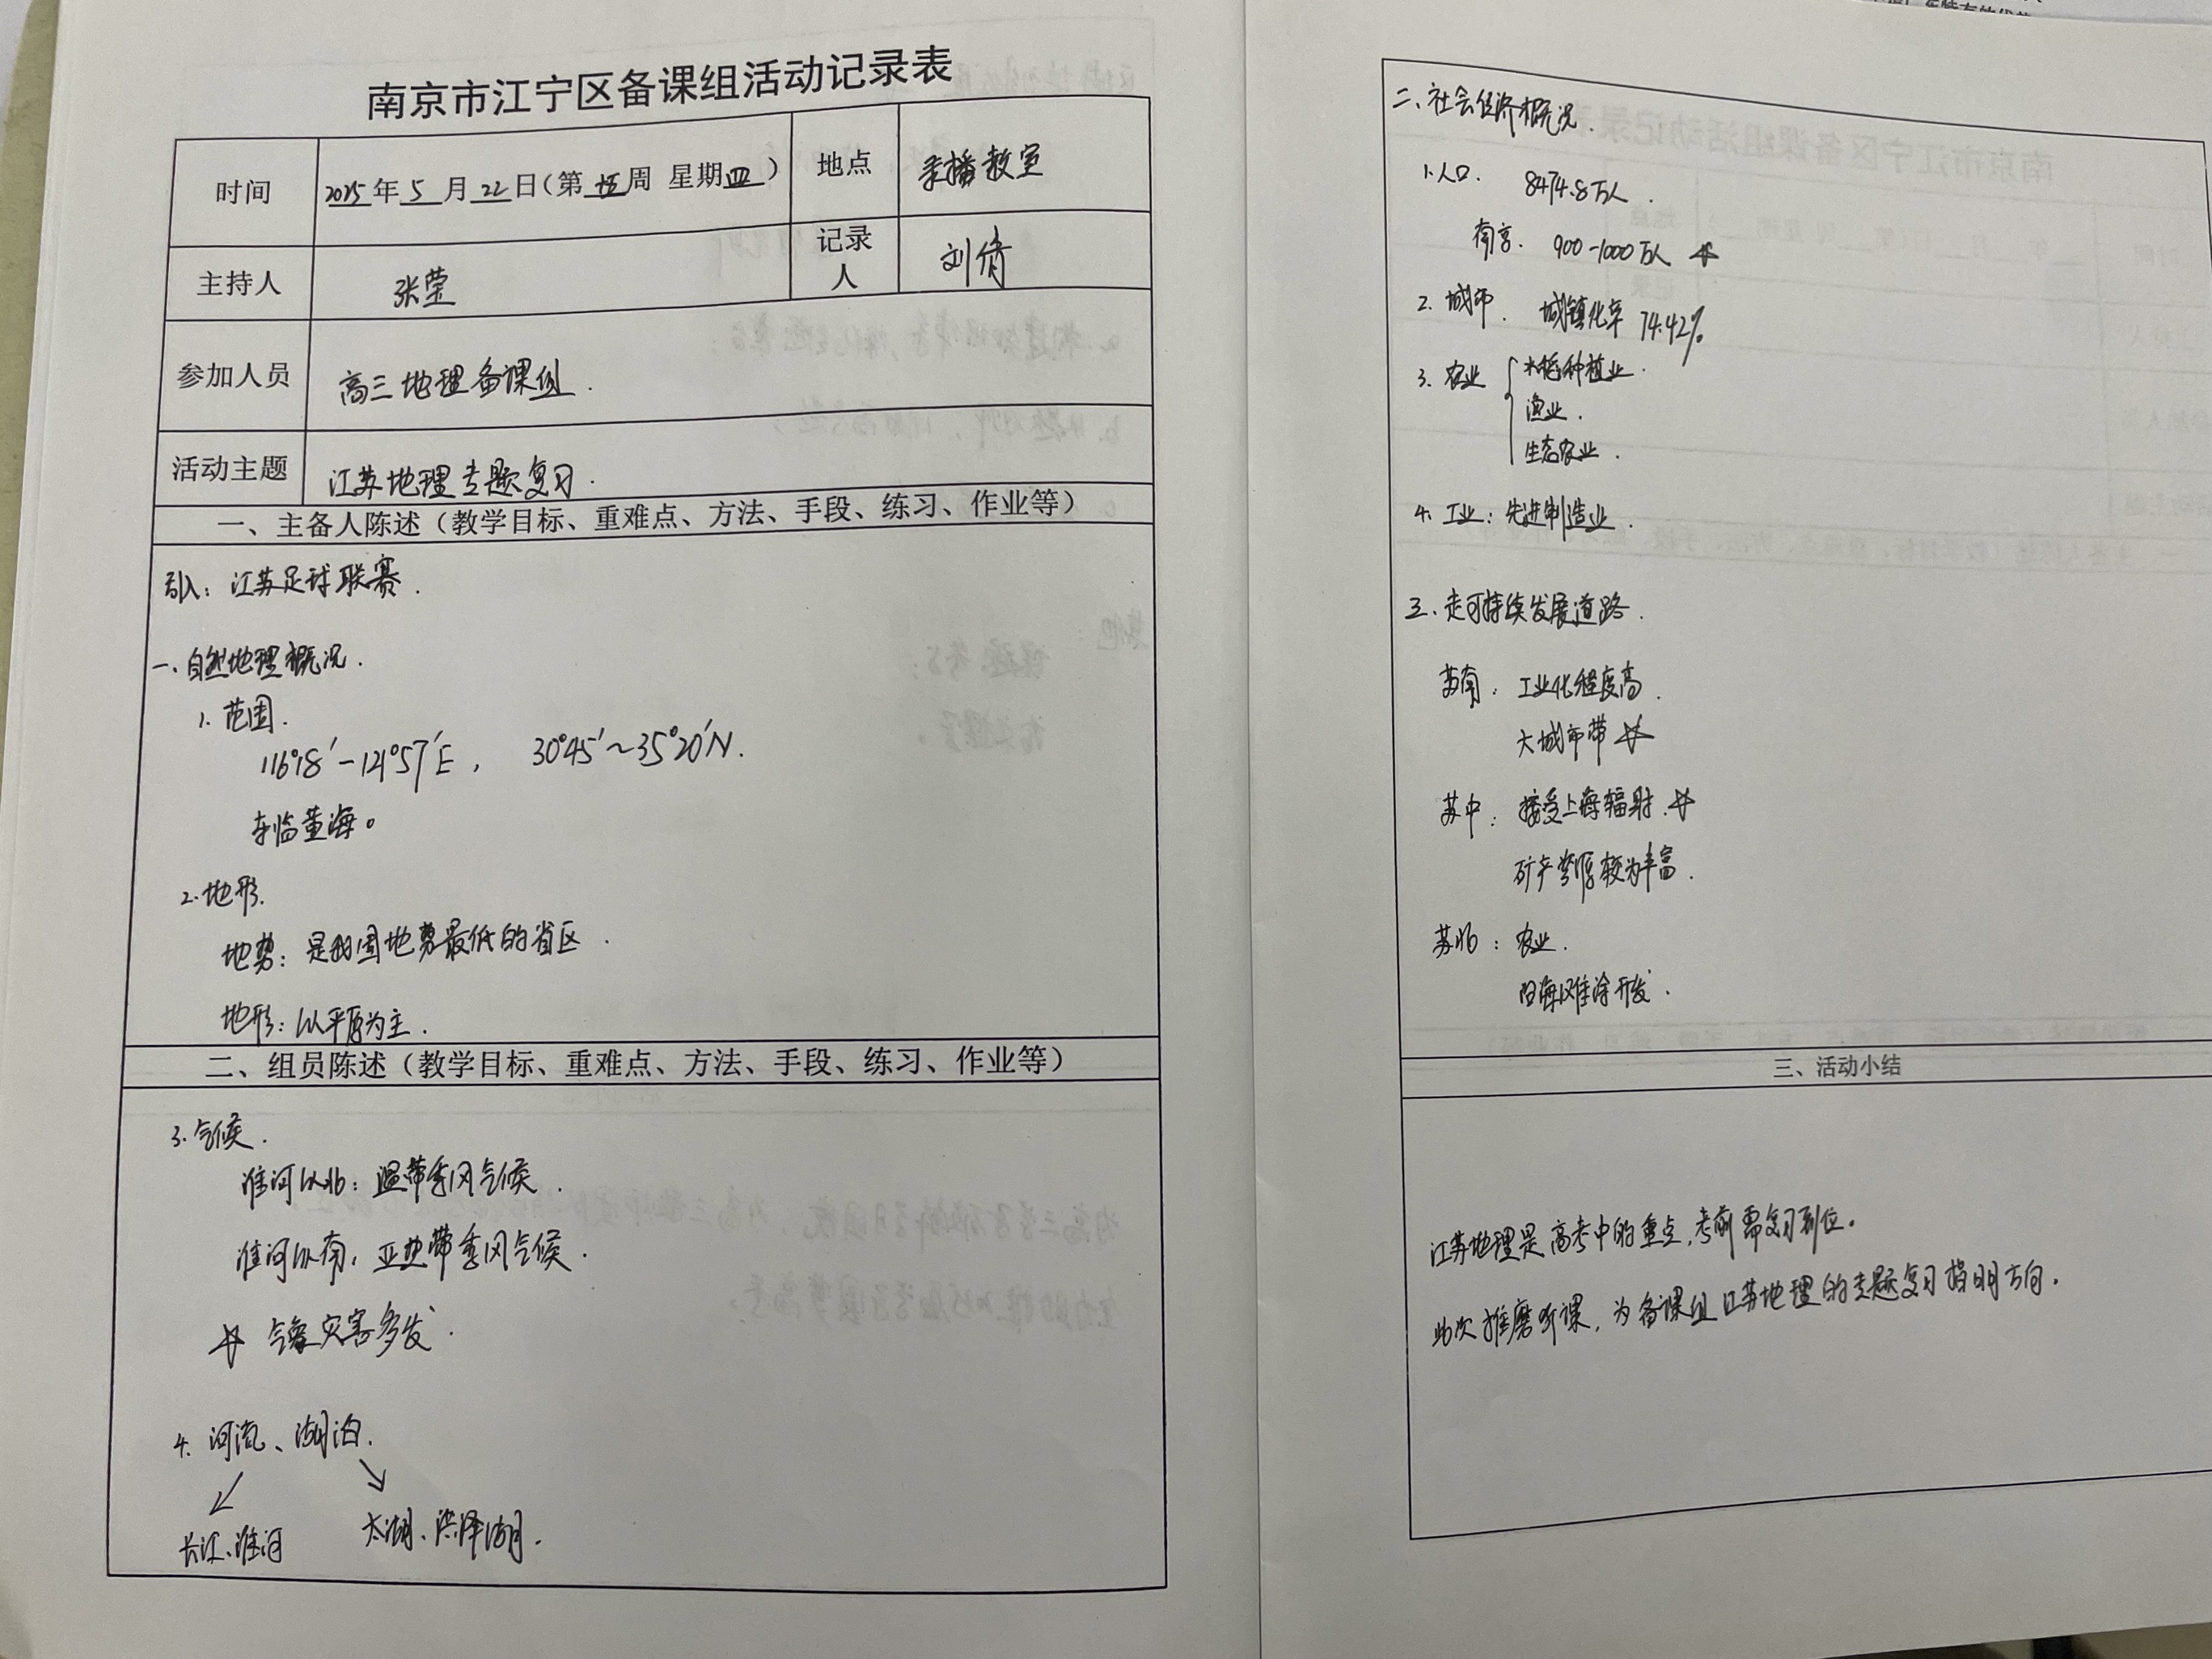 南京市江宁区备课组活动记录表
时间 2025年5月22日(第十五周 星期四) 地点 录播教室
主持人 张莹 记录人 刘倩
参加人员 高三地理备课组.
活动主题 江苏地理专题复习.
一、主备人陈述（教学目标、重难点、方法、手段、练习、作业等）
引入：江苏足球联赛.
一、自然地理概况.
1. 范围.
116°18′-121°57′E， 30°45′~35°20′N.
东临黄海。
2. 地形.
地势：是我国地势最低的省区.
地形：以平原为主.
二、组员陈述（教学目标、重难点、方法、手段、练习、作业等）
3. 气候.
淮河以北：温带季风气候.
淮河以南：亚热带季风气候.
☆ 气象灾害多发.
4. 河流、湖泊.
↙ ↘
长江、淮河 太湖、洪泽湖.
二、社会经济概况.
1. 人口. 8474.8万人.
南京. 900-1000万人 ☆
2. 城市. 城镇化率 74.42%
3. 农业 { 水稻种植业.
渔业.
生态农业.
4. 工业：先进制造业.
三. 走可持续发展道路.
苏南：工业化程度高.
大城市带 ☆
苏中：接受上海辐射.☆
矿产资源较为丰富.
苏北：农业.
沿海滩涂开发.
三、活动小结
江苏地理是高考中的重点，考前需复习到位。
此次推磨听课，为备课组江苏地理的专题复习指明方向.